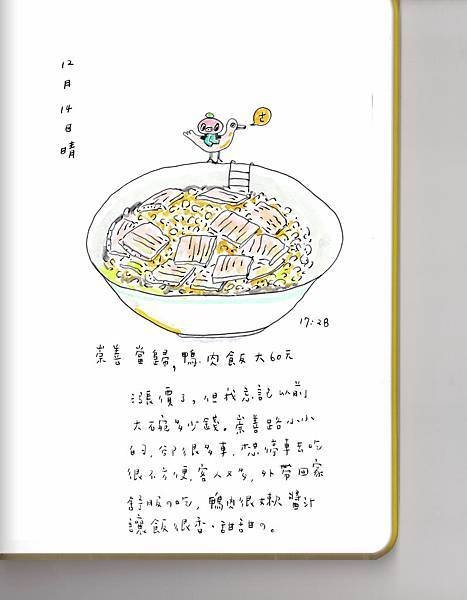 12月14日晴
古
17:28
崇善當歸,鴨肉飯大60元
漲價了,但我忘記以前
大碗多少錢。崇善路小小
的,卻很多車,想停車去吃
很不方便,客人又多,外帶回家
舒服の吃,鴨肉很嫩醬汁
讓飯很香、甜甜の。